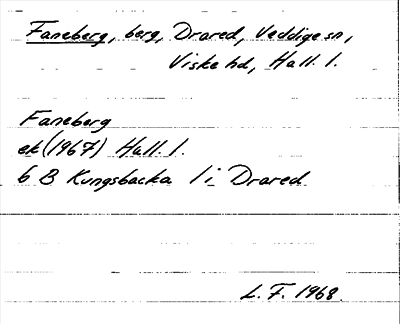 Faneberg, berg, Drared, Veddige sn,
Viske hd, Hall. l.
Faneberg
ek (1967) Hall. l.
6 B Kungsbacka l i Drared
L. F. 1968.